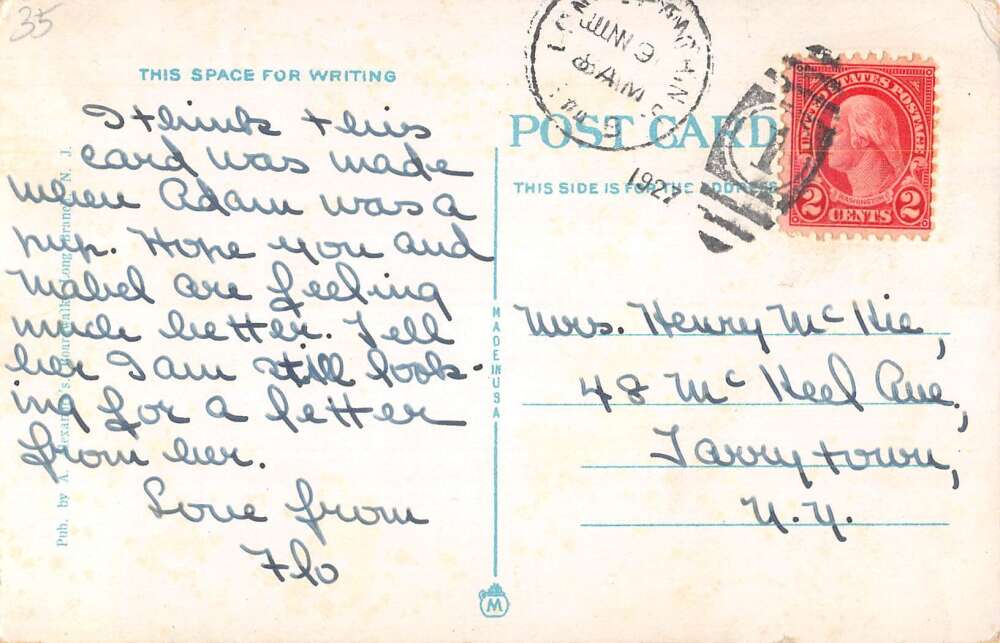 35
THIS SPACE FOR WRITING
I think this
card was made
when Adam was a
pup. Hope you and
Mabel are feeling
much better. Tell
her I am still look-
ing for a letter
from her.
Love from
Flo
Pub. by A. Alexander's, Boardwalk, Long Branch, N. J.
MADE IN USA
M
JUN 9
8 AM
N.J.
1927
POST CARD
THIS SIDE IS FOR THE ADDRESS
1
UNITED STATES POSTAGE
WASHINGTON
2 CENTS 2
Mrs. Henry McKie,
48 McKeel Ave.,
Tarrytown,
N.Y.